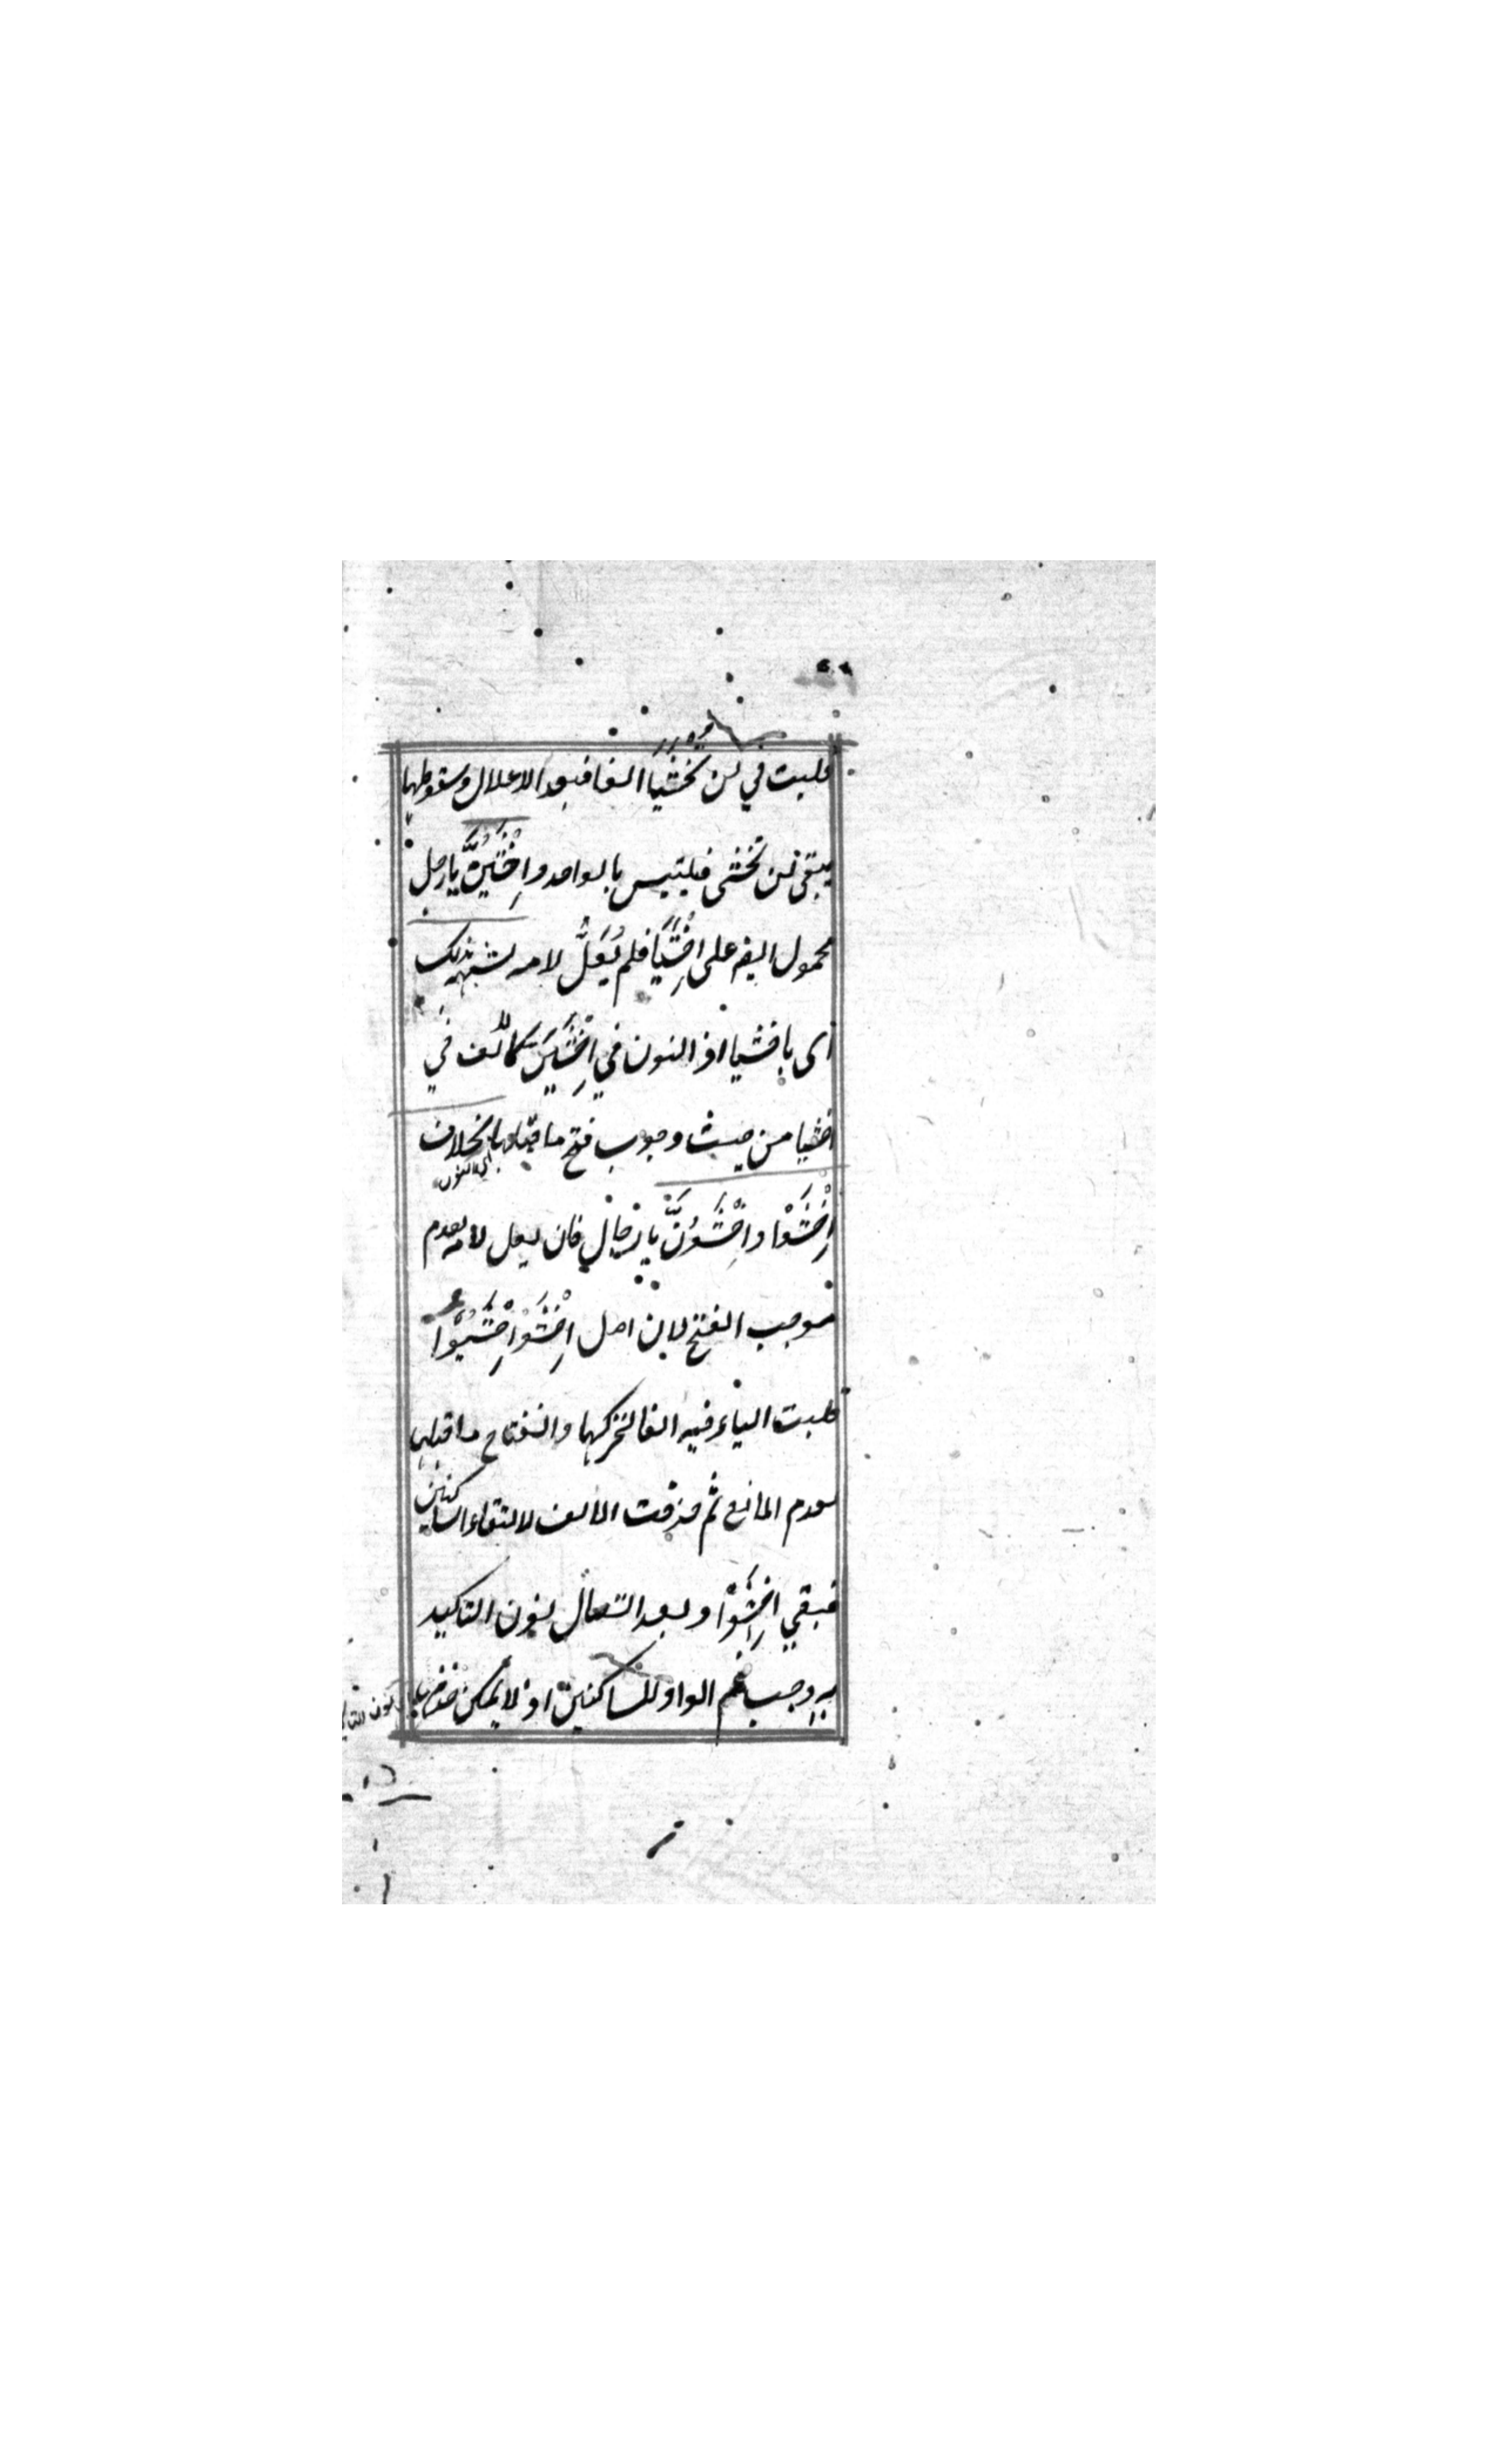 قلبت في لن يخشيا الفا فبعد الاعلال وسقوطها
يبقى لن تخشى فيلتبس بالواحد واِخْشَيَنَّ يا رجل
محمول ايضا على اِخْشَيَا فلم يُعَلَّ لامه لشبهه بذلك
اى باخشيا اذ النون في اِخْشَيَنَّ كالالف في
اخشيا من حيث وجوب فتح ما قبلها بخلاف
اى النون
اِخْشَوْا واِخْشَوُنَّ يا رجال فان يعل لامه لعدم
موجب الفتح لان اصل اِخْشَوْا اِخْشَيُوْا
قلبت الياء فيه الفا لتحركها وانفتاح ما قبلها
لعدم المانع ثم حذفت الالف لالتقاء الساكنين
فبقي اِخْشَوْا وبعد اتصال نون التاكيد
به وجب ضم الواو للساكنين اذ لا يمكن حذفها